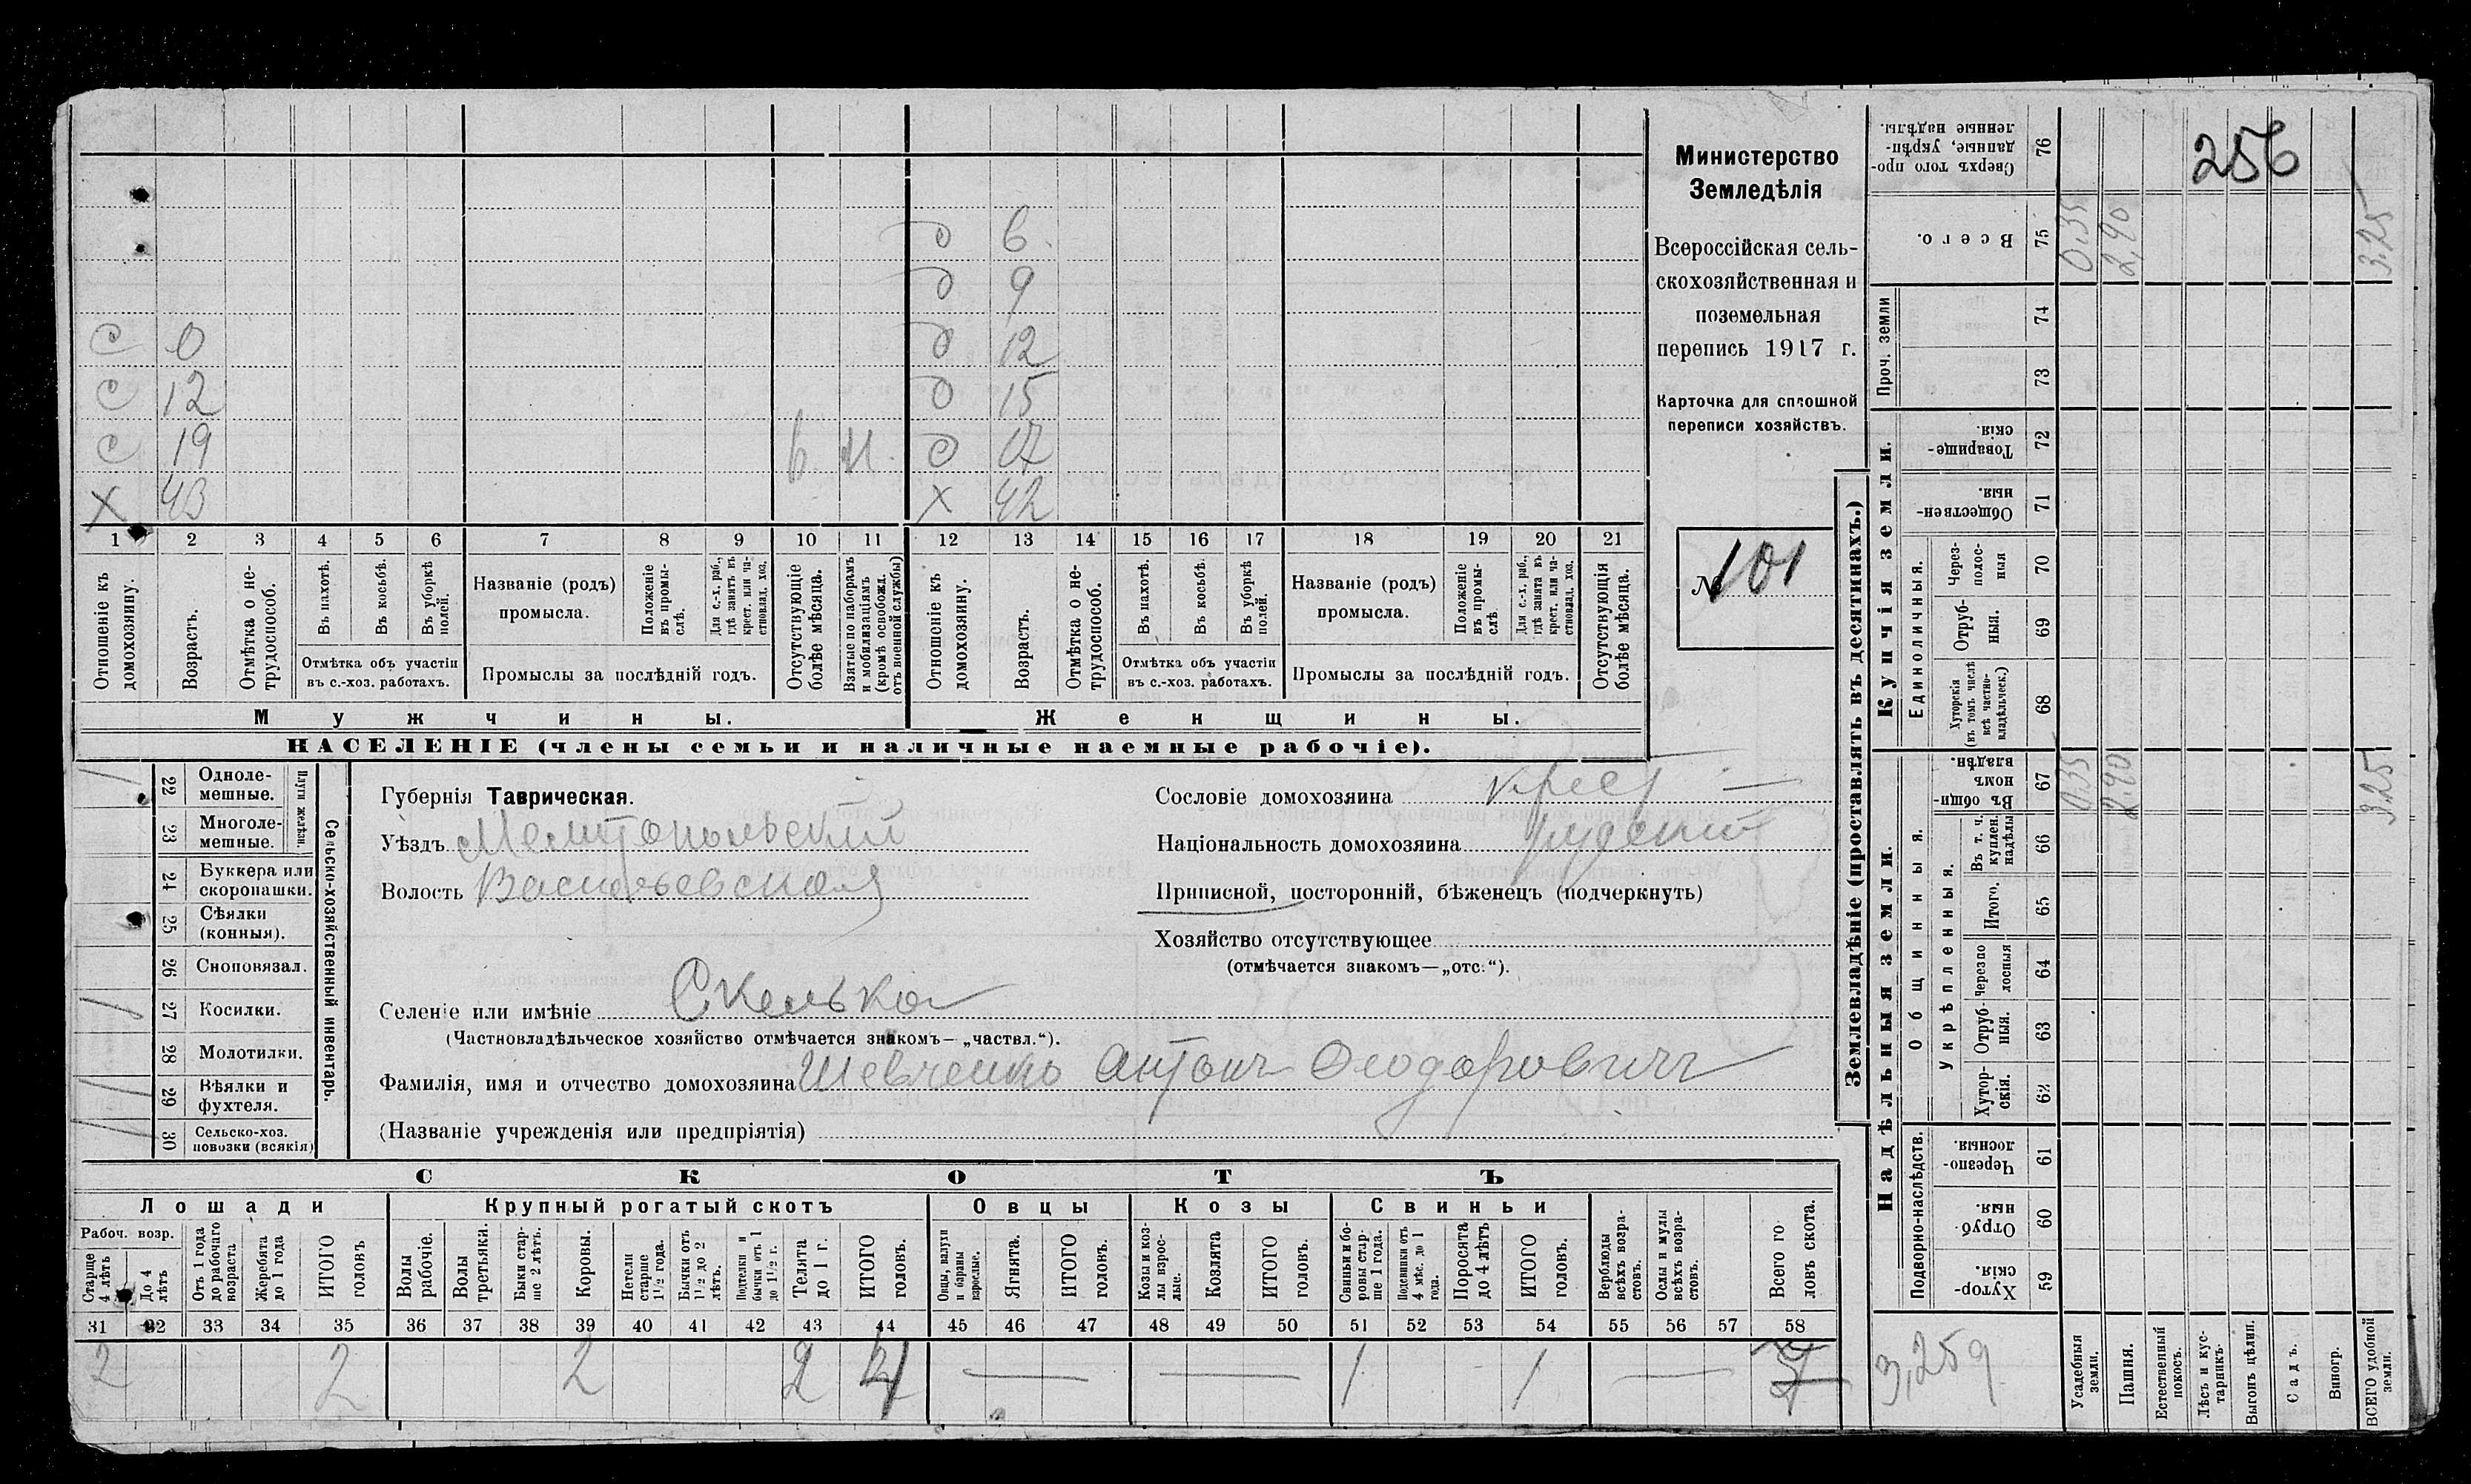 256
Министерство
Земледѣлія
Всероссійская сель-
скохозяйственная и
поземельная
перепись 1917 г.
Карточка для сплошной
переписи хозяйствъ.
№ 101
д 6
д 9
с 0 д 12
с 12 д 15
с 19 в. м. д 17
х 43 х 42
1 2 3 4 5 6 7 8 9 10 11 12 13 14 15 16 17 18 19 20 21
Отношеніе къ домохозяину.
Возрастъ.
Отмѣтка о не-трудоспособ.
Въ пахотѣ.
Въ косьбѣ.
Въ уборкѣ полей.
Отмѣтка объ участіи
въ с.-хоз. работахъ.
Названіе (родъ)
промысла.
Положеніе въ промы-слѣ.
Для с.-х. раб., гдѣ занятъ въ крест. или ча-стновлад. хоз.
Промыслы за послѣдній годъ.
Отсутствующіе болѣе мѣсяца.
Взятые по наборамъ и мобилизаціямъ (кромѣ освобожд. отъ военной службы)
Отношеніе къ домохозяину.
Возрастъ.
Отмѣтка о не-трудоспособ.
Въ пахотѣ.
Въ косьбѣ.
Въ уборкѣ полей.
Отмѣтка объ участіи
въ с.-хоз. работахъ.
Названіе (родъ)
промысла.
Положеніе въ промы-слѣ
Для с.-х. раб., гдѣ занята въ крест. или ча-стновлад. хоз.
Промыслы за послѣдній годъ.
Отсутствующія болѣе мѣсяца.
Мужчины. Женщины.
НАСЕЛЕНІЕ (члены семьи и наличные наемные рабочіе).
Сельско-хозяйственный инвентарь.
Плуги желѣзн.
22 Одноле-мешные.
23 Многоле-мешные.
24 Буккера или скоропашки.
25 Сѣялки (конныя).
26 Сноповязал.
27 Косилки.
28 Молотилки.
29 Вѣялки и фухтеля.
30 Сельско-хоз. повозки (всякія)
Губернія Таврическая.
Уѣздъ Мелитопольский
Волость Васильевская
Сословіе домохозяина крест.
Національность домохозяина русский
Приписной, посторонній, бѣженецъ (подчеркнуть)
Хозяйство отсутствующее
(отмѣчается знакомъ—„отс.“).
Селеніе или имѣніе Скелька
(Частновладѣльческое хозяйство отмѣчается знакомъ— „частвл.“).
Фамилія, имя и отчество домохозяина Шевченко Антон Феодорович
(Названіе учрежденія или предпріятія)
СКОТЪ
Лошади Крупный рогатый скотъ Овцы Козы Свиньи
Рабоч. возр.
Старше 4 лѣтъ
До 4 лѣтъ
Отъ 1 года до рабочаго возраста
Жеребята до 1 года
ИТОГО головъ
Волы рабочіе.
Волы третьяки.
Быки стар-ше 2 лѣтъ.
Коровы.
Нетели старше 1½ года.
Бычки отъ 1½ до 2 лѣтъ.
Подтелки и бычки отъ 1 до 1½ г.
Телята до 1 г.
ИТОГО головъ.
Овцы, валухи и бараны взрослые.
Ягнята.
ИТОГО головъ.
Козы и коз-лы взрос-лые.
Козлята
ИТОГО головъ.
Свиньи и бо-ровы стар-ше 1 года.
Подсвинки отъ 4 мѣс. до 1 года.
Поросята до 4 лѣтъ
ИТОГО головъ.
Верблюды всѣхъ возра-стовъ.
Ослы и мулы всѣхъ возра-стовъ.
Всего го-ловъ скота.
31 32 33 34 35 36 37 38 39 40 41 42 43 44 45 46 47 48 49 50 51 52 53 54 55 56 57 58
2 2 2 2 4 — — 1 1 — 7
Землевладѣніе (проставлять въ десятинахъ.)
Надѣльныя земли. Купчія земли. Проч. земли
Подворно-наслѣдств. Общинныя. Укрѣпленныя. Единоличныя.
76 Сверхъ того про-данные, укрѣп-ленные надѣлы.
75 Всего. 0,35 2,90 3.25
74
73
72 Товарище-скія.
71 Обществен-ныя.
70 Через-полос-ныя
69 Отруб-ныя.
68 Хуторскія (въ томъ числѣ всѣ частно-владѣльческ.)
67 Въ общин-номъ владѣн. 0,35 2,90 3,25
66 Въ т. ч. куплен. надѣлы
65 Итого.
64 Черезпо-лосныя
63 Отруб-ныя.
62 Хутор-скія.
61 Черезпо-лосныя.
60 Отруб-ныя.
59 Хутор-скія.
3,25 9
Усадебныя земли.
Пашня.
Естественный покосъ.
Лѣсъ и кус-тарникъ.
Выгонъ цѣлин.
Садъ.
Виногр.
ВСЕГО удобной земли.